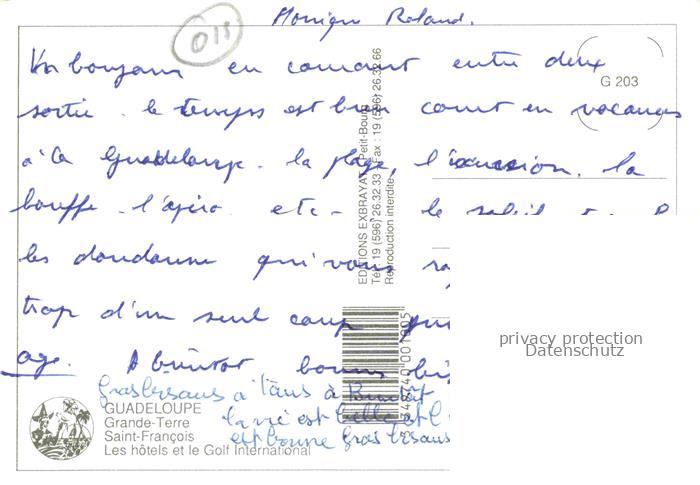 Monique Roland.
013
G 203
Un bonjour en courant entre deux
sortie. le temps est bien court en vacances
à la Guadeloupe. la plage, l'excursion, la
bouffe. l'apéro. etc - le soleil
les doudoune qui vous
trop d'un seul coup
age. A bientot bonnes
gros bisous à tous à
la vie est belle et
est bonne gros bisous
EDITIONS EXBRAYAT - Petit-Bourg
Tél: 19 (596) 26.32.33 - Fax : 19 (596) 26.32.66
Reproduction interdite
GUADELOUPE
Grande-Terre
Saint-François
Les hôtels et le Golf International
privacy protection
Datenschutz